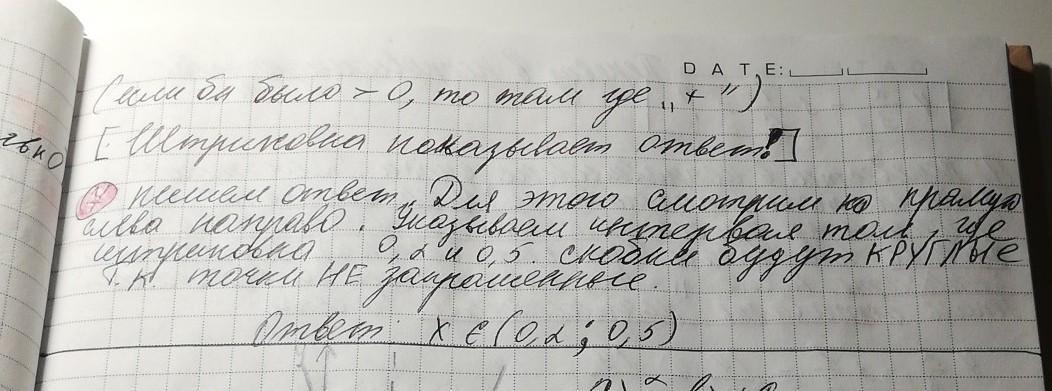 DATE:
(если бы было > 0, то там где „+")
[Штриховка показывает ответ!]
пишем ответ. Для этого смотрим на прямую
слева направо. Указываем интервал там, где
штриховка 0,2 и 0,5. скобки будут КРУГЛЫЕ
т.к. точки НЕ закрашенные.
Ответ: x ∈ (0,2 ; 0,5)